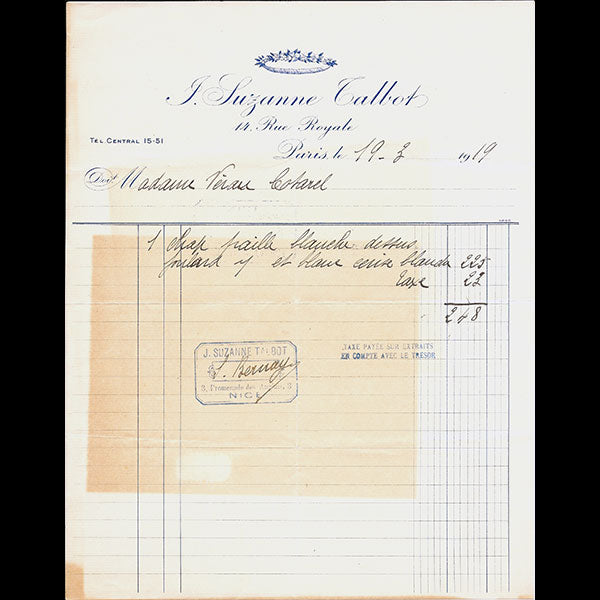 J. Suzanne Talbot
14, Rue Royale
TEL. CENTRAL 15-51
Paris, le 19 - 3 1919
Doit Madame
1 chap paille blanche dessus
foulard et blanc cerise blanche 225
taxe 23
248
TAXE PAYÉE SUR EXTRAITS
EN COMPTE AVEC LE TRÉSOR
J. SUZANNE TALBOT
3, Promenade des Anglais, 3
NICE